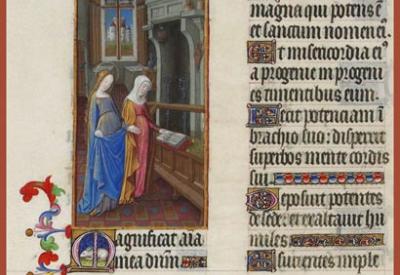 Magnificat aīa
mea dūm
magna qui potens ē
et sanctum nomen eiꝰ.
Et misericordia eiꝰ
a progenie in progeni
es timentibus eum.
Fecit potenciam ī
brachio suo: dispersit
superbos mente cordis
sui.
Deposuit potentes
de sede: et exaltauit hu
miles
Esurientes imple